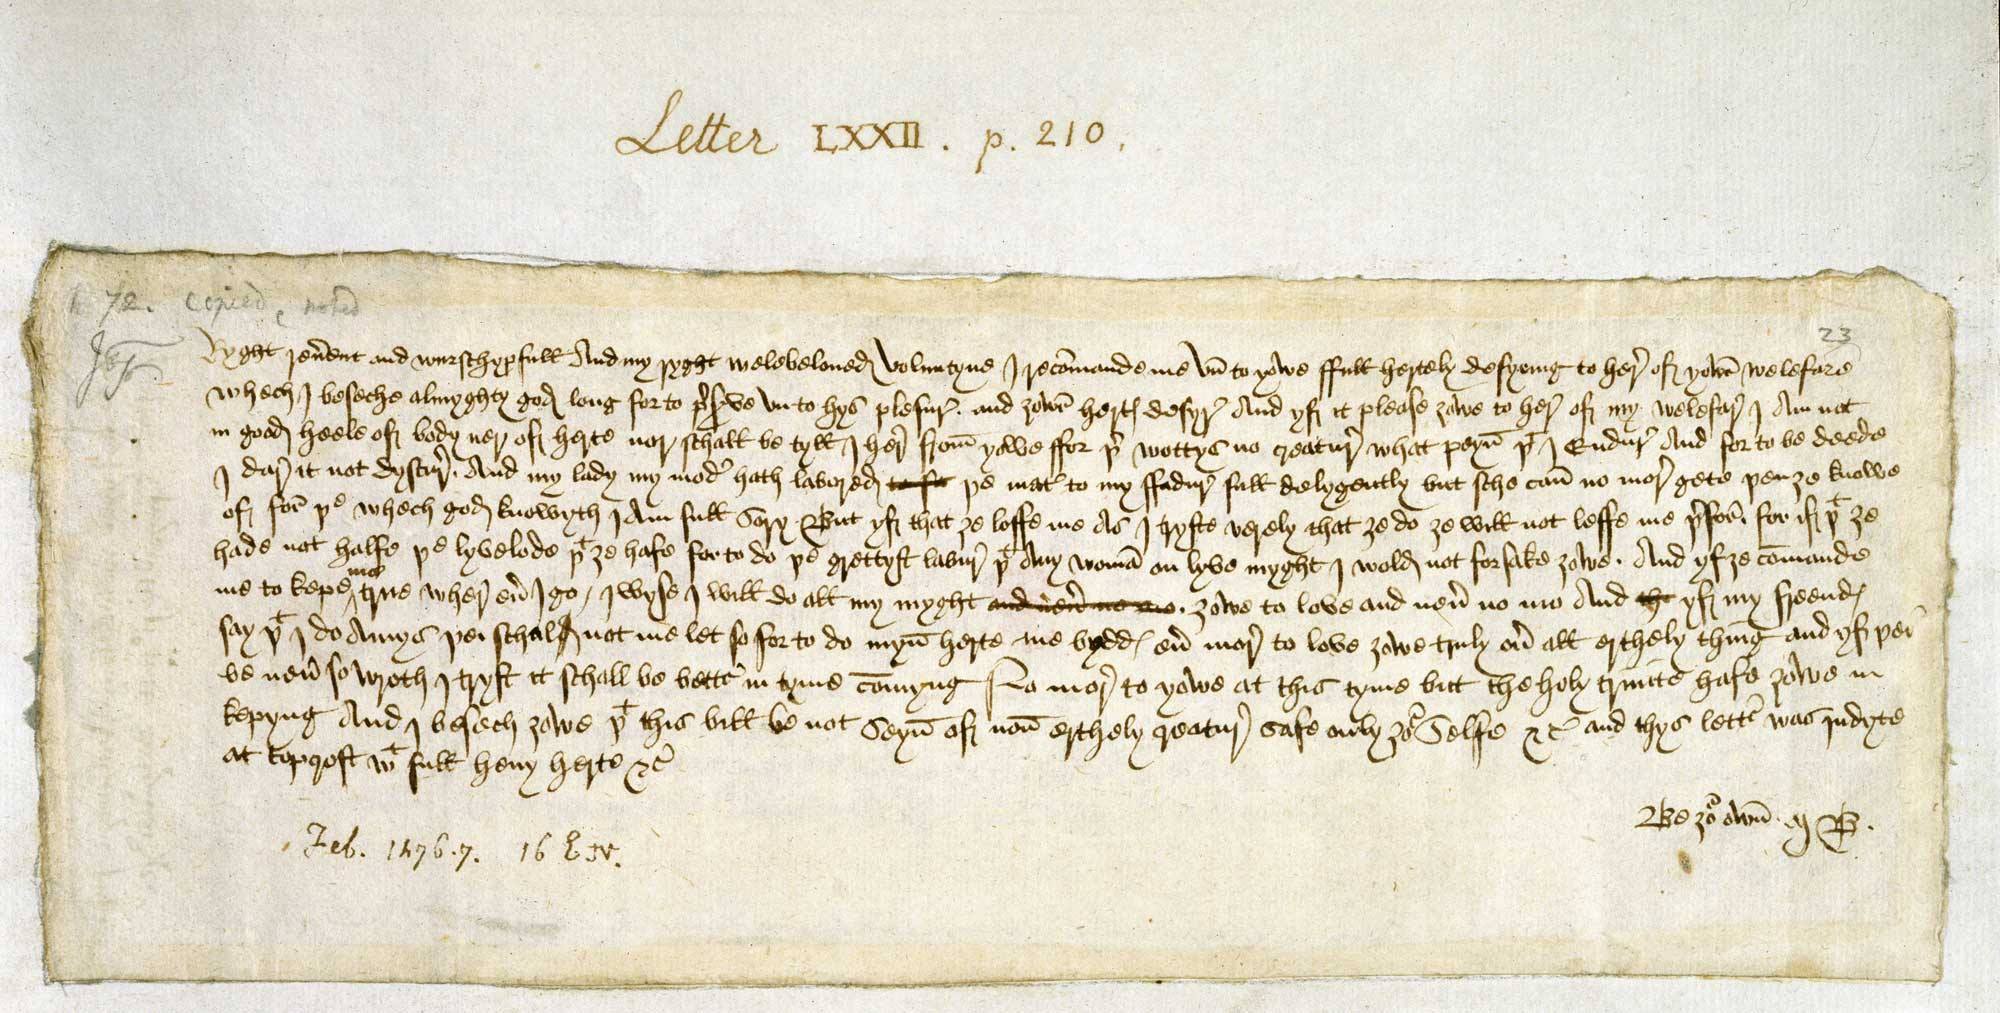 Letter LXXII. p. 210.
72. copied, noted
23
Ryght reu͛ent and wurschypfull And my ryght welebeloued Voluntyne I recōmande me vn to yowe ffull hertely desyring to her͛ of yowr͛ welefare
whech I beseche almyghty god long for to p͛s͛ve vn to hys plesur͛ . and ȝowr͛ hert͛ desyr͛ And yf it please ȝowe to her͛ of my welefar͛ I Am not
in good heele of body ner of herte nor schall be tyll I her͛ from yowe ffor þ͛ wottys no creatur͛ what peyn̄ þᵗ I Endur͛ And for to be deede
I dar it not dyscur͛ . And my lady my mod͛ hath labored ~~to fa~~ þe mat͛ to my ffadur͛ full delygently but sche can̄ no mor͛ gete þen ȝe knowe
of for͛ þᵉ whech god knowyth I Am full Sory But yf that ȝe loffe me As I tryste verely that ȝe do ȝe will not leffe me þ͛for͛ . for if þᵗ ȝe
hade not halfe þᵉ lyvelode þᵗ ȝe hafe for to do þᵉ grettyst labur͛ þᵗ Any womā on lyve myght I wold not forsake ȝowe . And yf ȝe cōmande
me to kepe me true wher͛ eu͛ I go / I wyse I will do all my myght ~~and neu͛ no mo~~ . ȝowe to love and neu͛ no mo And ~~th~~ yf my freend͛
say þᵗ I do Amys þei schall not me let so for to do myn̄ herte me bydd͛ eu͛ mor͛ to love ȝowe truly ou͛ all erthely thing and yf þei
be neu͛ so wroth I tryst it schall be bett͛ in tyme cōmyng No mor͛ to yowe at this tyme but the holy trinite hafe ȝowe in
kepyng And I besech ȝowe þᵗ this bill be not Seyn̄ of non̄ erthely creatur͛ safe only ȝoʳ Selfe &c͛ and thys lett͛ was indyte
at topcroft wᵗ full heuy herte &c͛
Be ȝoʳ own̄ . M B .
Feb. 1476.7. 16 E IV.